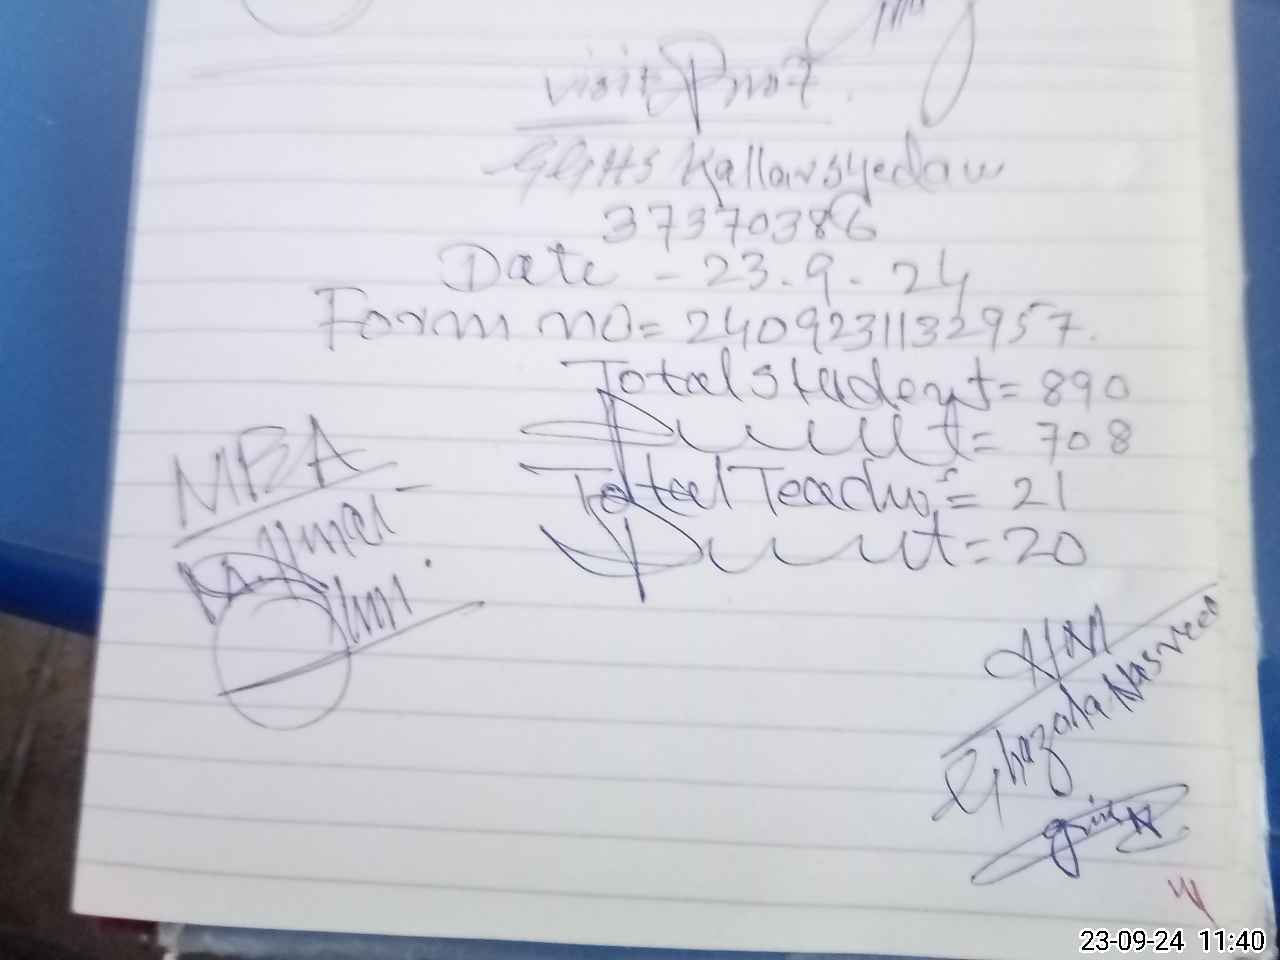 visit Proof.
GGHS Kallarsyedan
37370386
Date - 23.9.24
Form no= 2409231132957.
Total student= 890
Present= 708
Total Teacher's= 21
Present=20
MEA
HM
Ghazala Nasreen
23-09-24 11:40